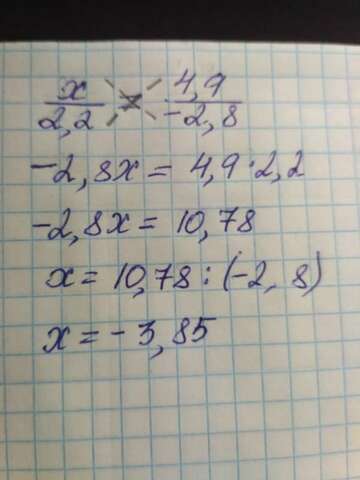 x/2,2 = 4,9/-2,8
-2,8x = 4,9·2,2
-2,8x = 10,78
x = 10,78 : (-2,8)
x = -3,85